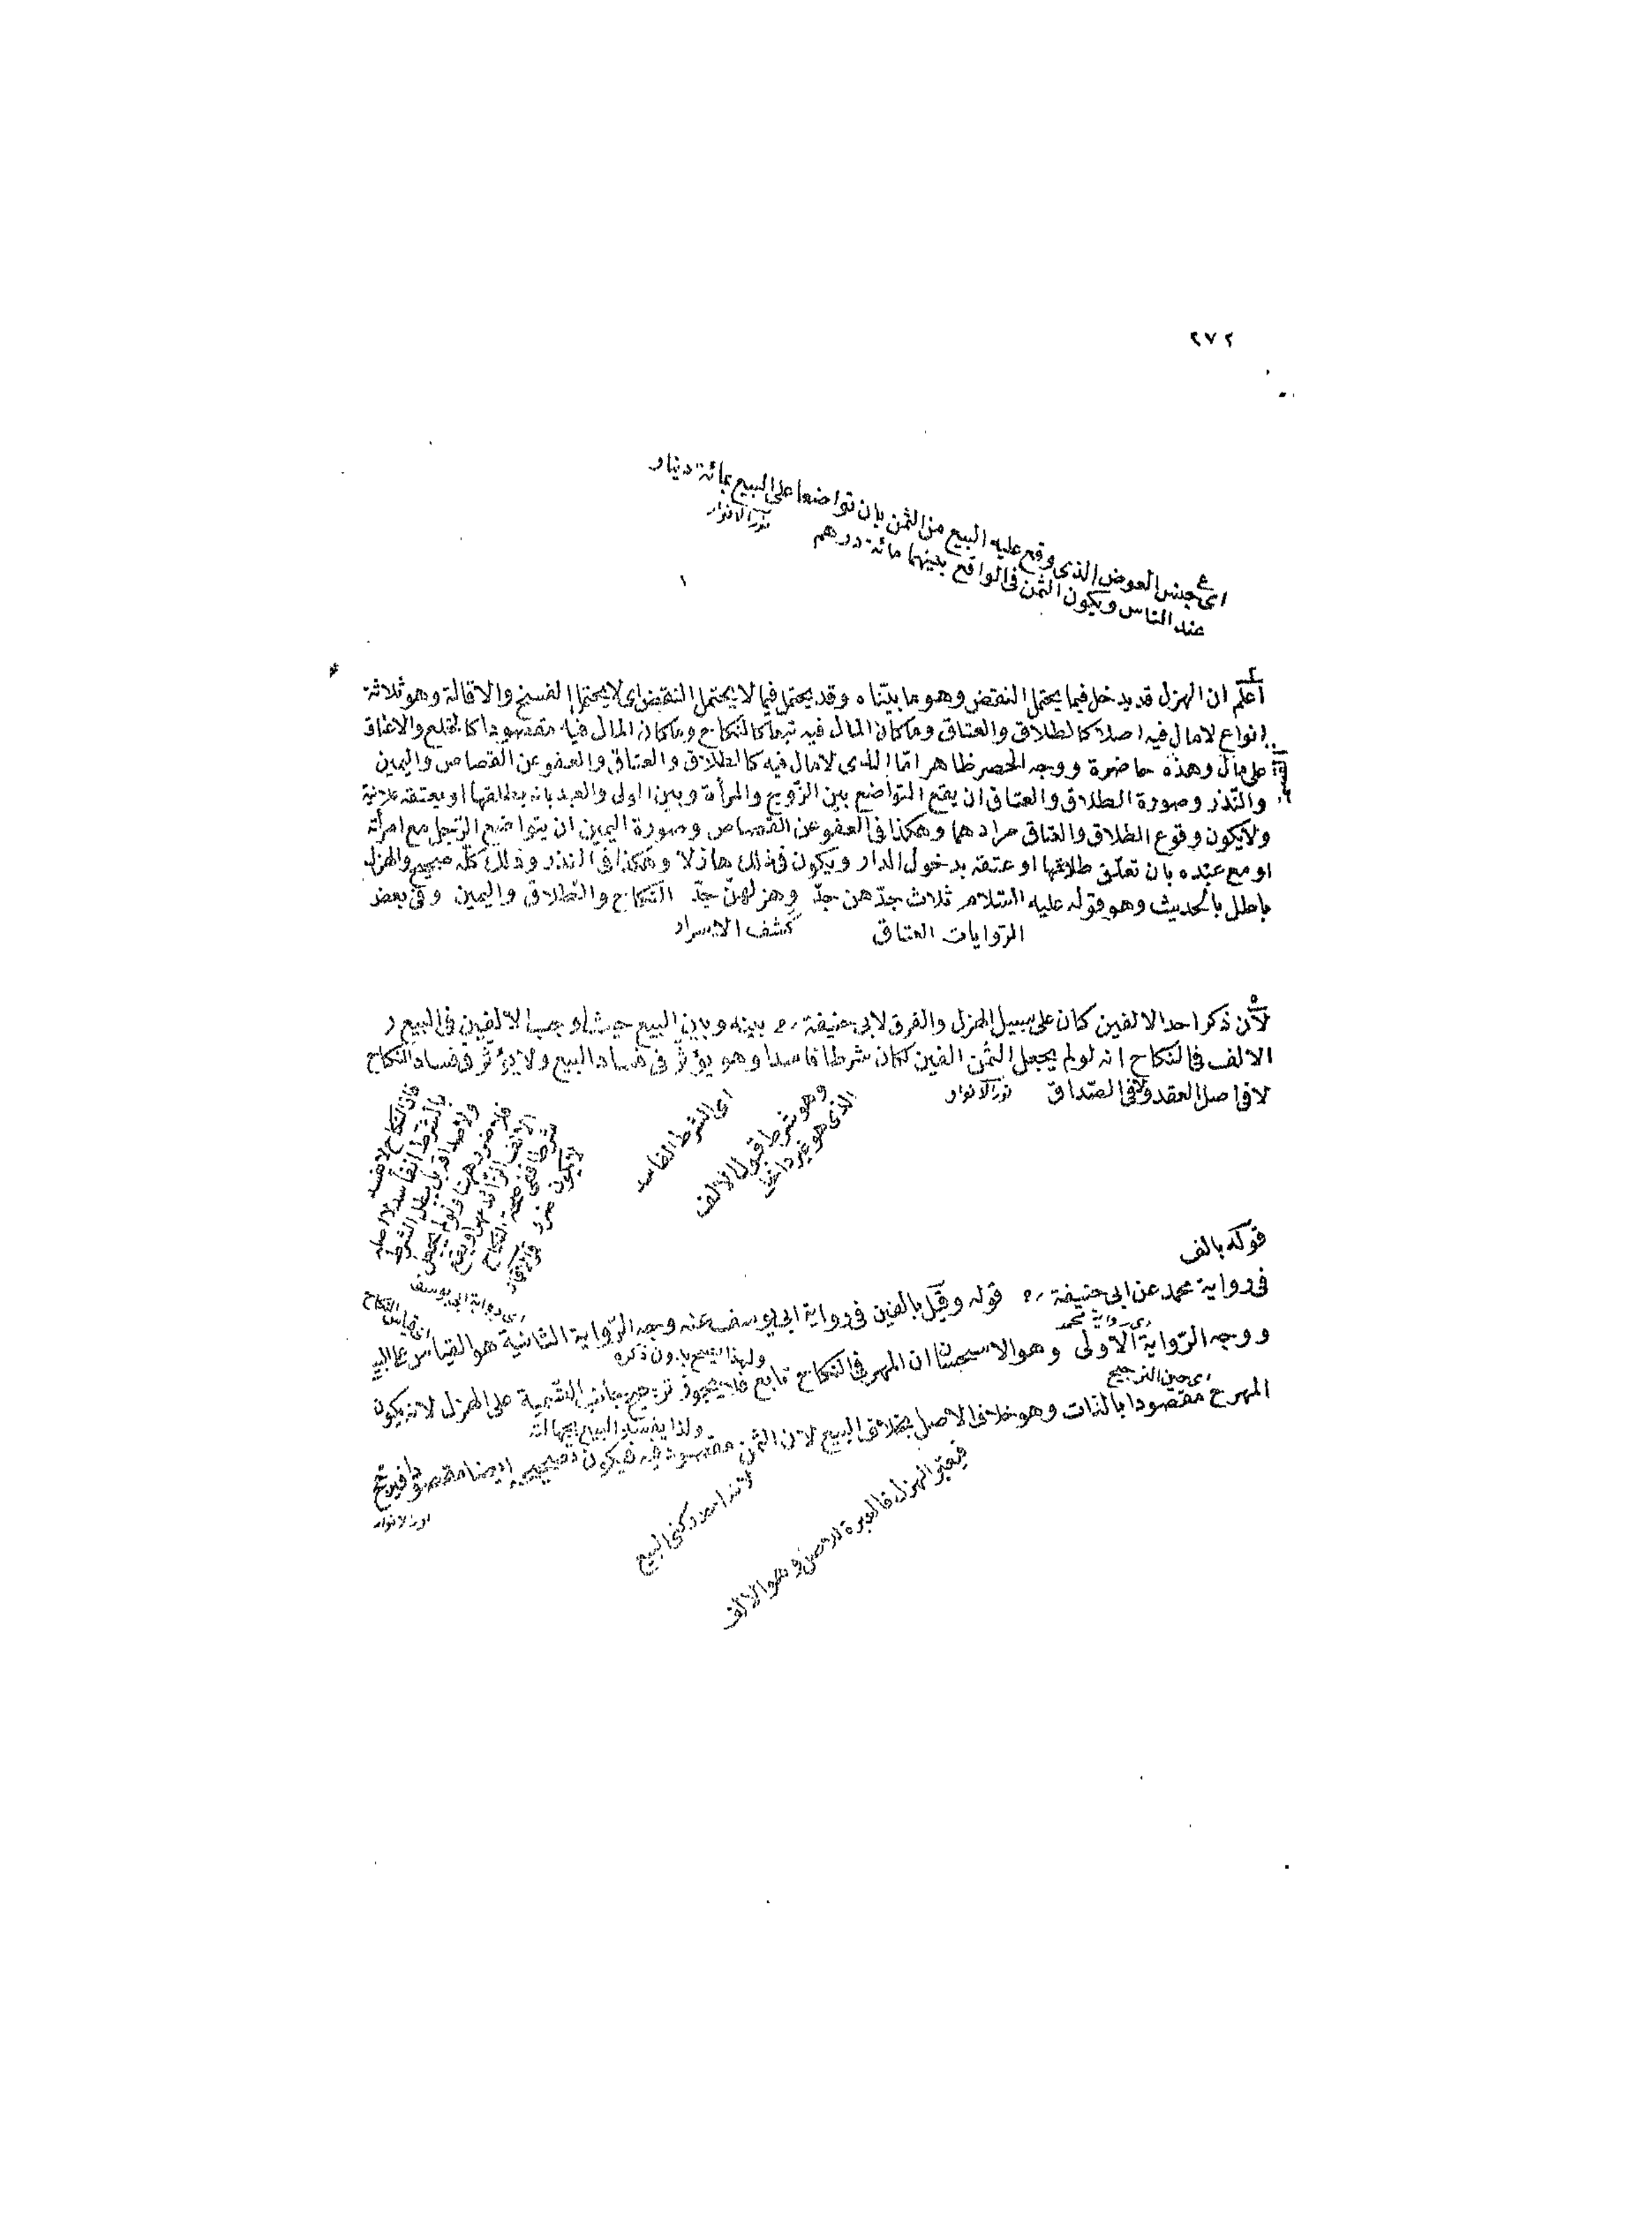 ٢٧٢
ع
اى جنس العوض الذى وقع عليه البيع من الثمن بان تواضعا على البيع بمائة دينار
عند الناس ويكون الثمن فى الواقع بينهما مائة درهم
نور الانوار
اعلم ان الهزل قد يدخل فيما يحتمل النقض وهو ما بيّناه وقد يحتمل فيما لا يحتمل النقض اى لا يحتمل الفسخ والاقالة وهو ثلاثة
انواع لا مال فيه اصلا كالطلاق والعتاق وما كان المال فيه تبعا كالنكاح وما كان المال فيه مقصودا كالخلع والاعتاق
على مال وهذه حاضرة ووجه الحصر ظاهر امّا الذى لا مال فيه كالطلاق والعتاق والعفو عن القصاص واليمين
والنّذر وصورة الطلاق والعتاق ان يقع التواضع بين الزّوج والمرأة وبين المولى والعبد بانه يطلقها او يعتقه علانية
ولا يكون وقوع الطلاق والعتاق مرادهما وهكذا فى العفو عن القصاص وصورة اليمين ان يتواضع الرّجل مع امرأته
او مع عبده بان تعلّق طلاقها او عتقه بدخول الدار ويكون فى ذلك هازلا وهكذا فى النذر وذلك كلّه صحيح والهزل
باطل بالحديث وهو قوله عليه السّلام ثلاث جدّهن جدّ وهزلهنّ جدّ النّكاح والطّلاق واليمين وفى بعض
الرّوايات العتاق كشف الاسرار
لأن ذكر احد الالفين كان على سبيل الهزل والفرق لابى حنيفة ره بينه وبين البيع حيث اوجب الالفين فى البيع و
الالف فى النكاح انه لو لم يجعل الثمن الفين لكان شرطا فاسدا وهو يؤثّر فى فساد البيع ولا يؤثّر فى فساد النّكاح
لا فى اصل العقد ولا فى الصّداق نور الانوار
اى الشرط الفاسد
وهو شرط قبول الالف
الذى هو غير داخل
فان النكاح لا يفسد
بالشرط الفاسد لا اصله
ولا صداقه بل يبطل الشرط
قوله بالف
فى رواية محمد عن ابى حنيفة ره قوله وقيل بالفين فى رواية ابى يوسف عنه وجه الرّواية الثانية هو القياس على البيع
اى رواية ابى يوسف
اى قياس النكاح
اى رواية محمد
ووجه الرّواية الاولى وهو الاستحسان ان المهر فى النكاح تابع فلا يجوز ترجيح جانب التسمية على الهزل لانه يكون
ولهذا يصح بدون ذكره
اى حين الترجيح
المهر ح مقصودا بالذات وهو خلاف الاصل بخلاف البيع لان الثمن مقصود فيه فيكون تصحيحه ايضا مقصودا فيرجّح
ولذا يفسد البيع بجهالته
نور الانوار
لانه احد ركنى البيع
فيعتبر الهزل فالعبرة للاصل وهو الالف